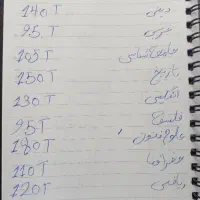 140 T دینی
95 T عربی
105 T جامعه شناسی
150 T تاریخ
130 T انگلیسی
95 T فلسفه
180 T علوم و فنون
110 T جغرافیا
120 T ریاضی